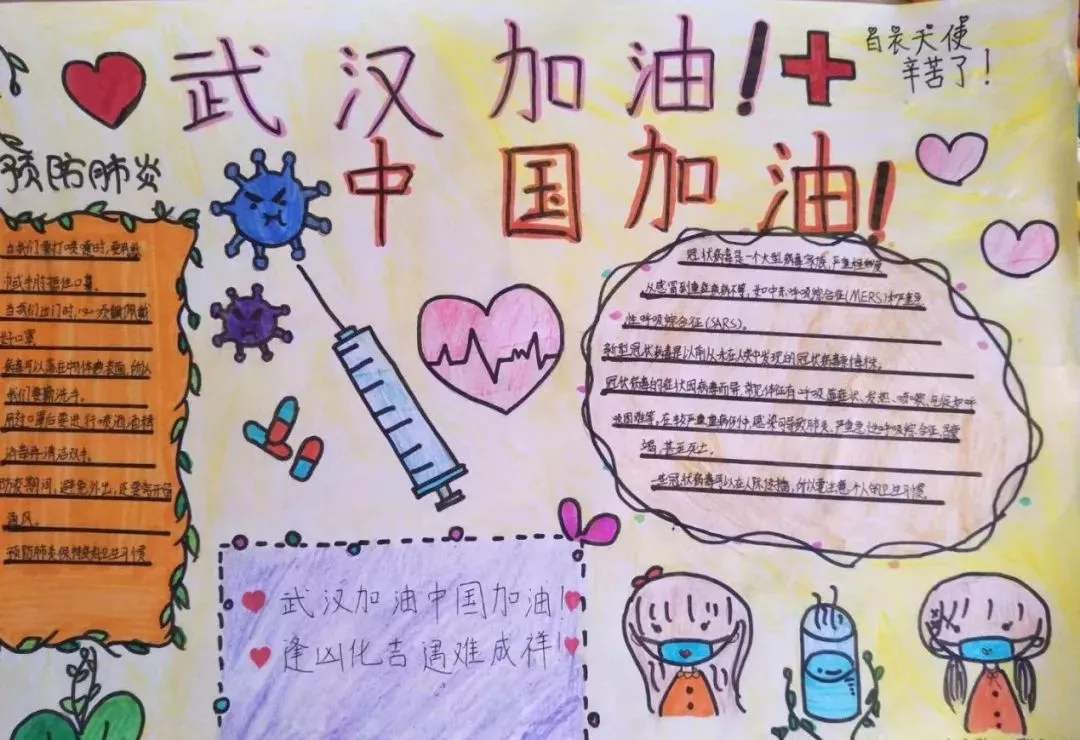 武汉加油！
中国加油！
白衣天使
辛苦了！
预防肺炎
当我们要打喷嚏时，要用纸
巾或手肘捂住口鼻。
当我们出门时，一次佩戴
好口罩
我们要勤洗手。
消毒并清洁双手。
防疫期间，避免外出，还要多开窗
通风。
冠状病毒是一个大型病毒家族，严重
从感冒到重症疾病不等，如中东呼吸综合征(MERS)和严重急
性呼吸综合征(SARS)。
新型冠状病毒是以前从未在人类中发现的冠状病毒新毒株。
冠状病毒的症状因病毒而异，常见体征有呼吸道症状、发热、咳嗽、气促和呼
吸困难等。在较严重病例中，感染可导致肺炎、严重急性呼吸综合征、肾衰
竭，甚至死亡。
一些冠状病毒可以在人际传播，所以要注意个人的卫生习惯。
武汉加油中国加油！
逢凶化吉遇难成祥！